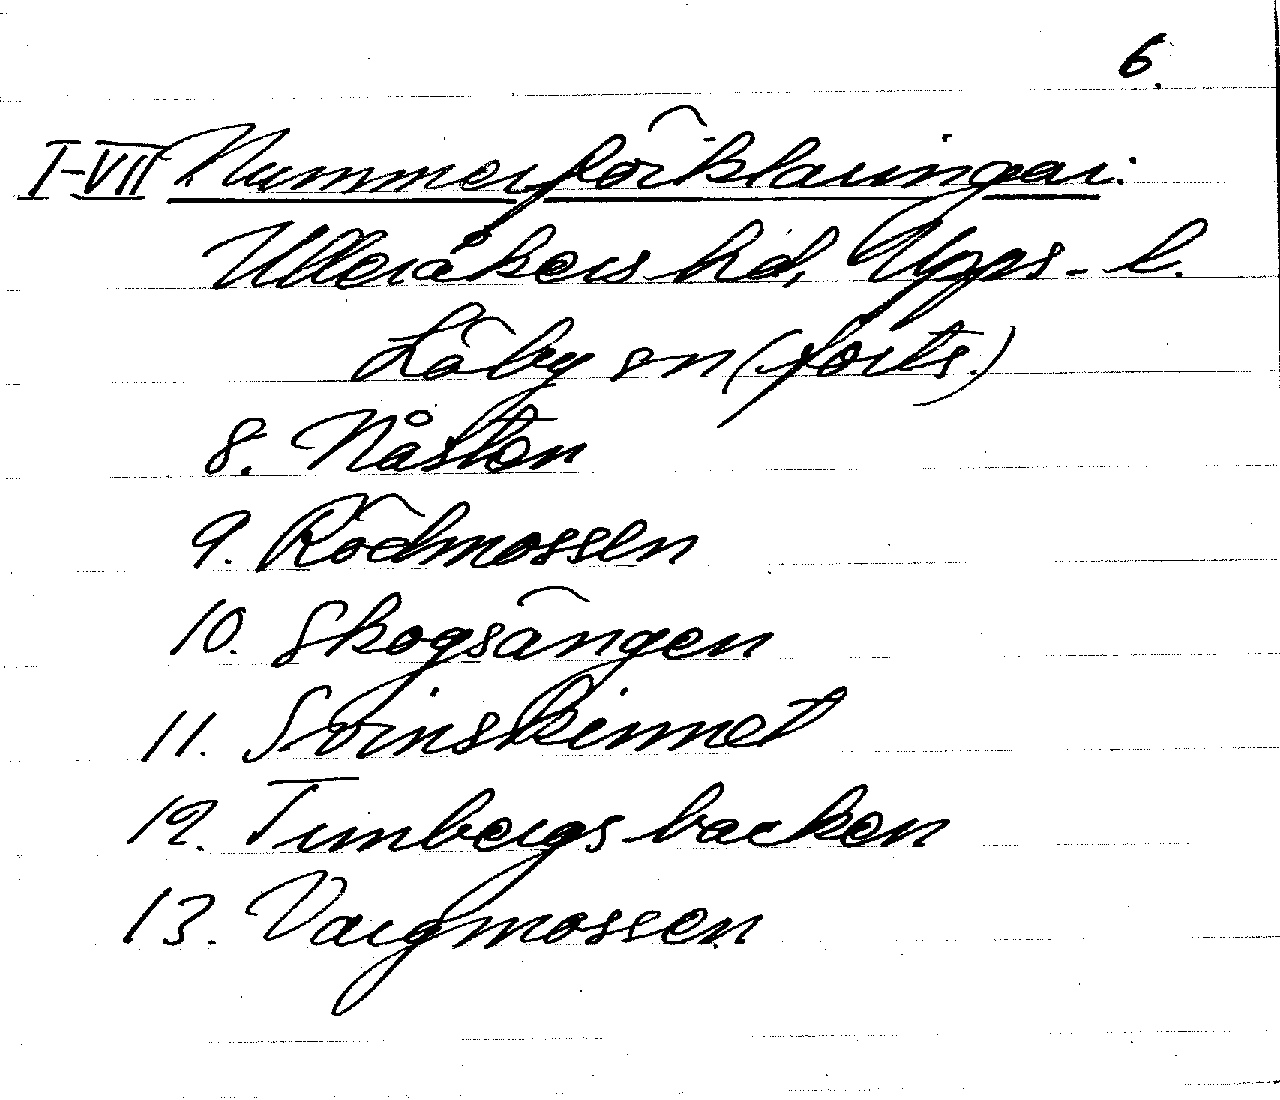 6.
I-VII Nummerförklaringar:
Ulleråkers hd, Upps. l.
Läby sn (forts.)
8. Nåsten
9. Rödmossen
10. Skogsängen
11. Svinskinnet
12. Tunbergsbacken
13. Vargmossen